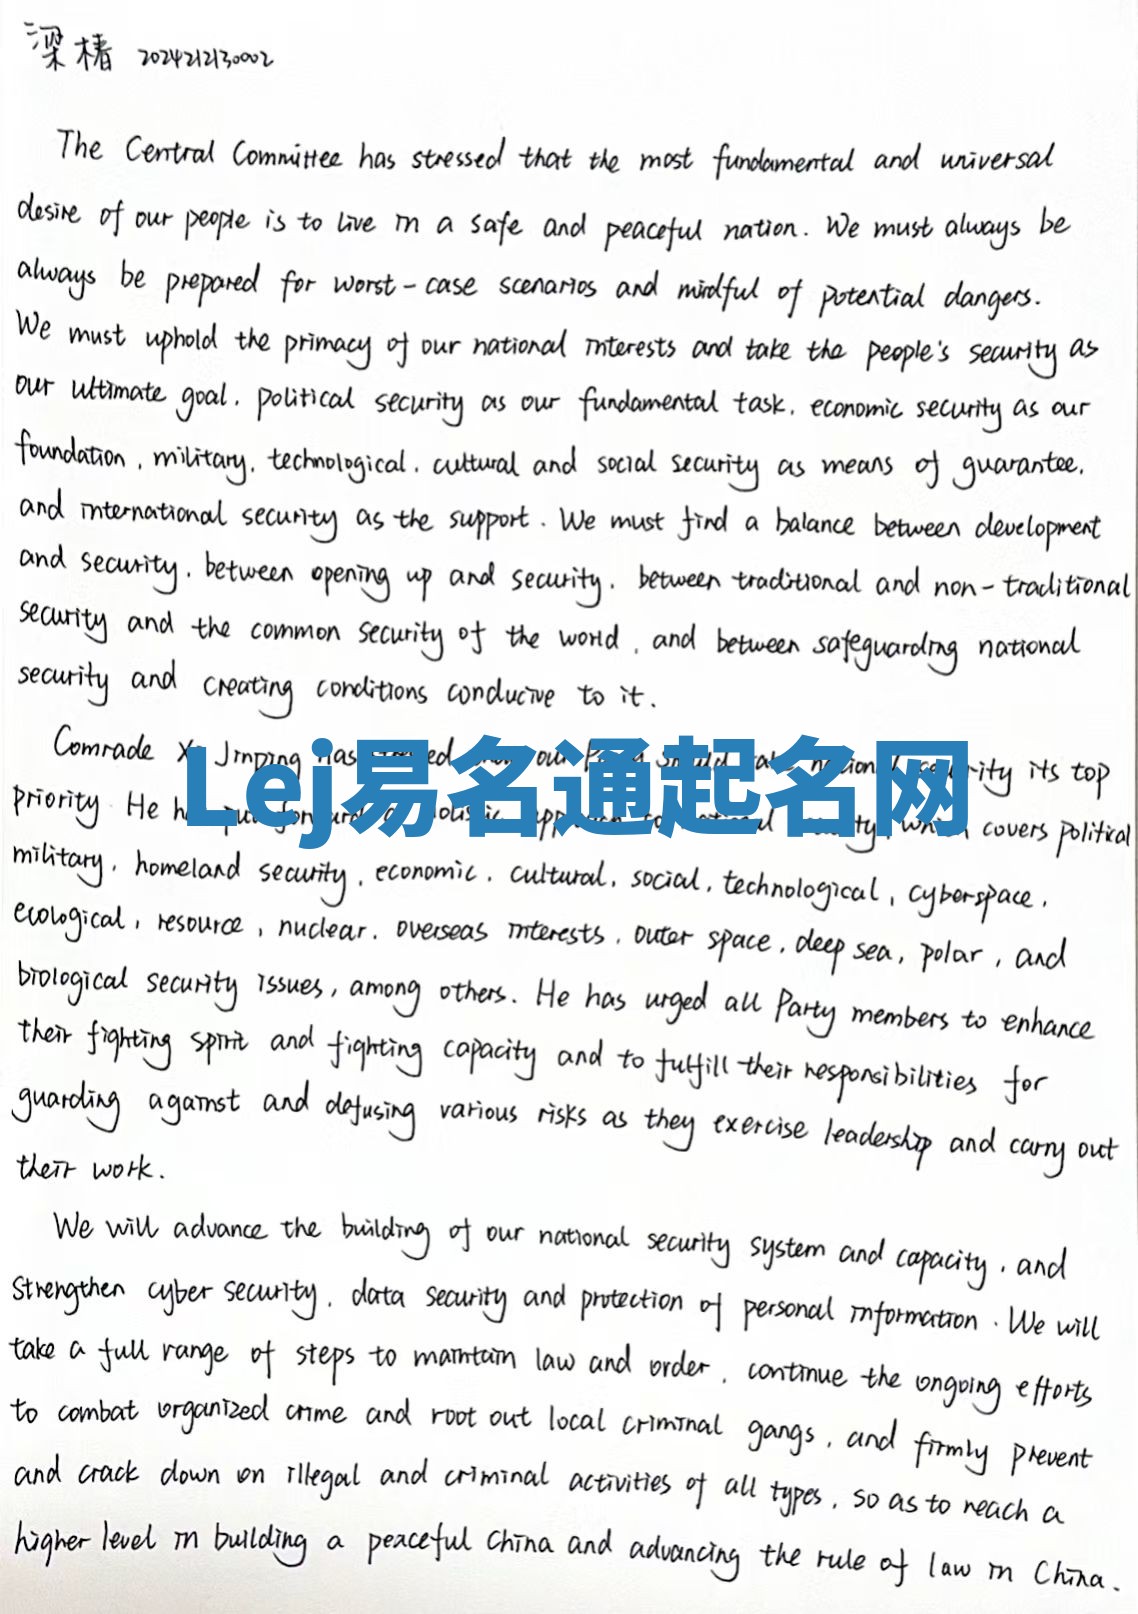 梁椿 2024212130002
The Central Committee has stressed that the most fundamental and universal
desire of our people is to live in a safe and peaceful nation. We must always be
always be prepared for worst-case scenarios and mindful of potential dangers.
We must uphold the primacy of our national interests and take the people's security as
our ultimate goal, political security as our fundamental task, economic security as our
foundation, military, technological, cultural and social security as means of guarantee,
and international security as the support. We must find a balance between development
and security, between opening up and security, between traditional and non-traditional
security and the common security of the world, and between safeguarding national
security and creating conditions conducive to it.
Comrade Xi Jinping has our its top
Lej易名通起名网
priority. He covers political
military, homeland security, economic, cultural, social, technological, cyberspace,
ecological, resource, nuclear, overseas interests, outer space, deep sea, polar, and
biological security issues, among others. He has urged all Party members to enhance
their fighting spirit and fighting capacity and to fulfill their responsibilities for
guarding against and defusing various risks as they exercise leadership and carry out
their work.
We will advance the building of our national security system and capacity, and
strengthen cyber security, data security and protection of personal information. We will
take a full range of steps to maintain law and order, continue the ongoing efforts
to combat organized crime and root out local criminal gangs, and firmly prevent
and crack down on illegal and criminal activities of all types, so as to reach a
higher level in building a peaceful China and advancing the rule of law in China.